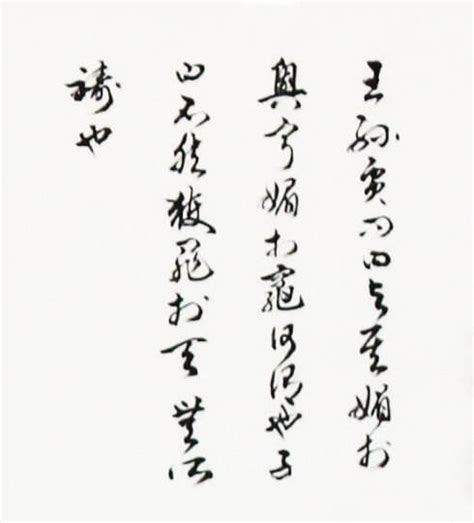 王孫賈問曰與其媚於
奧寧媚於竈何謂也子
曰不然獲罪於天無所
禱也